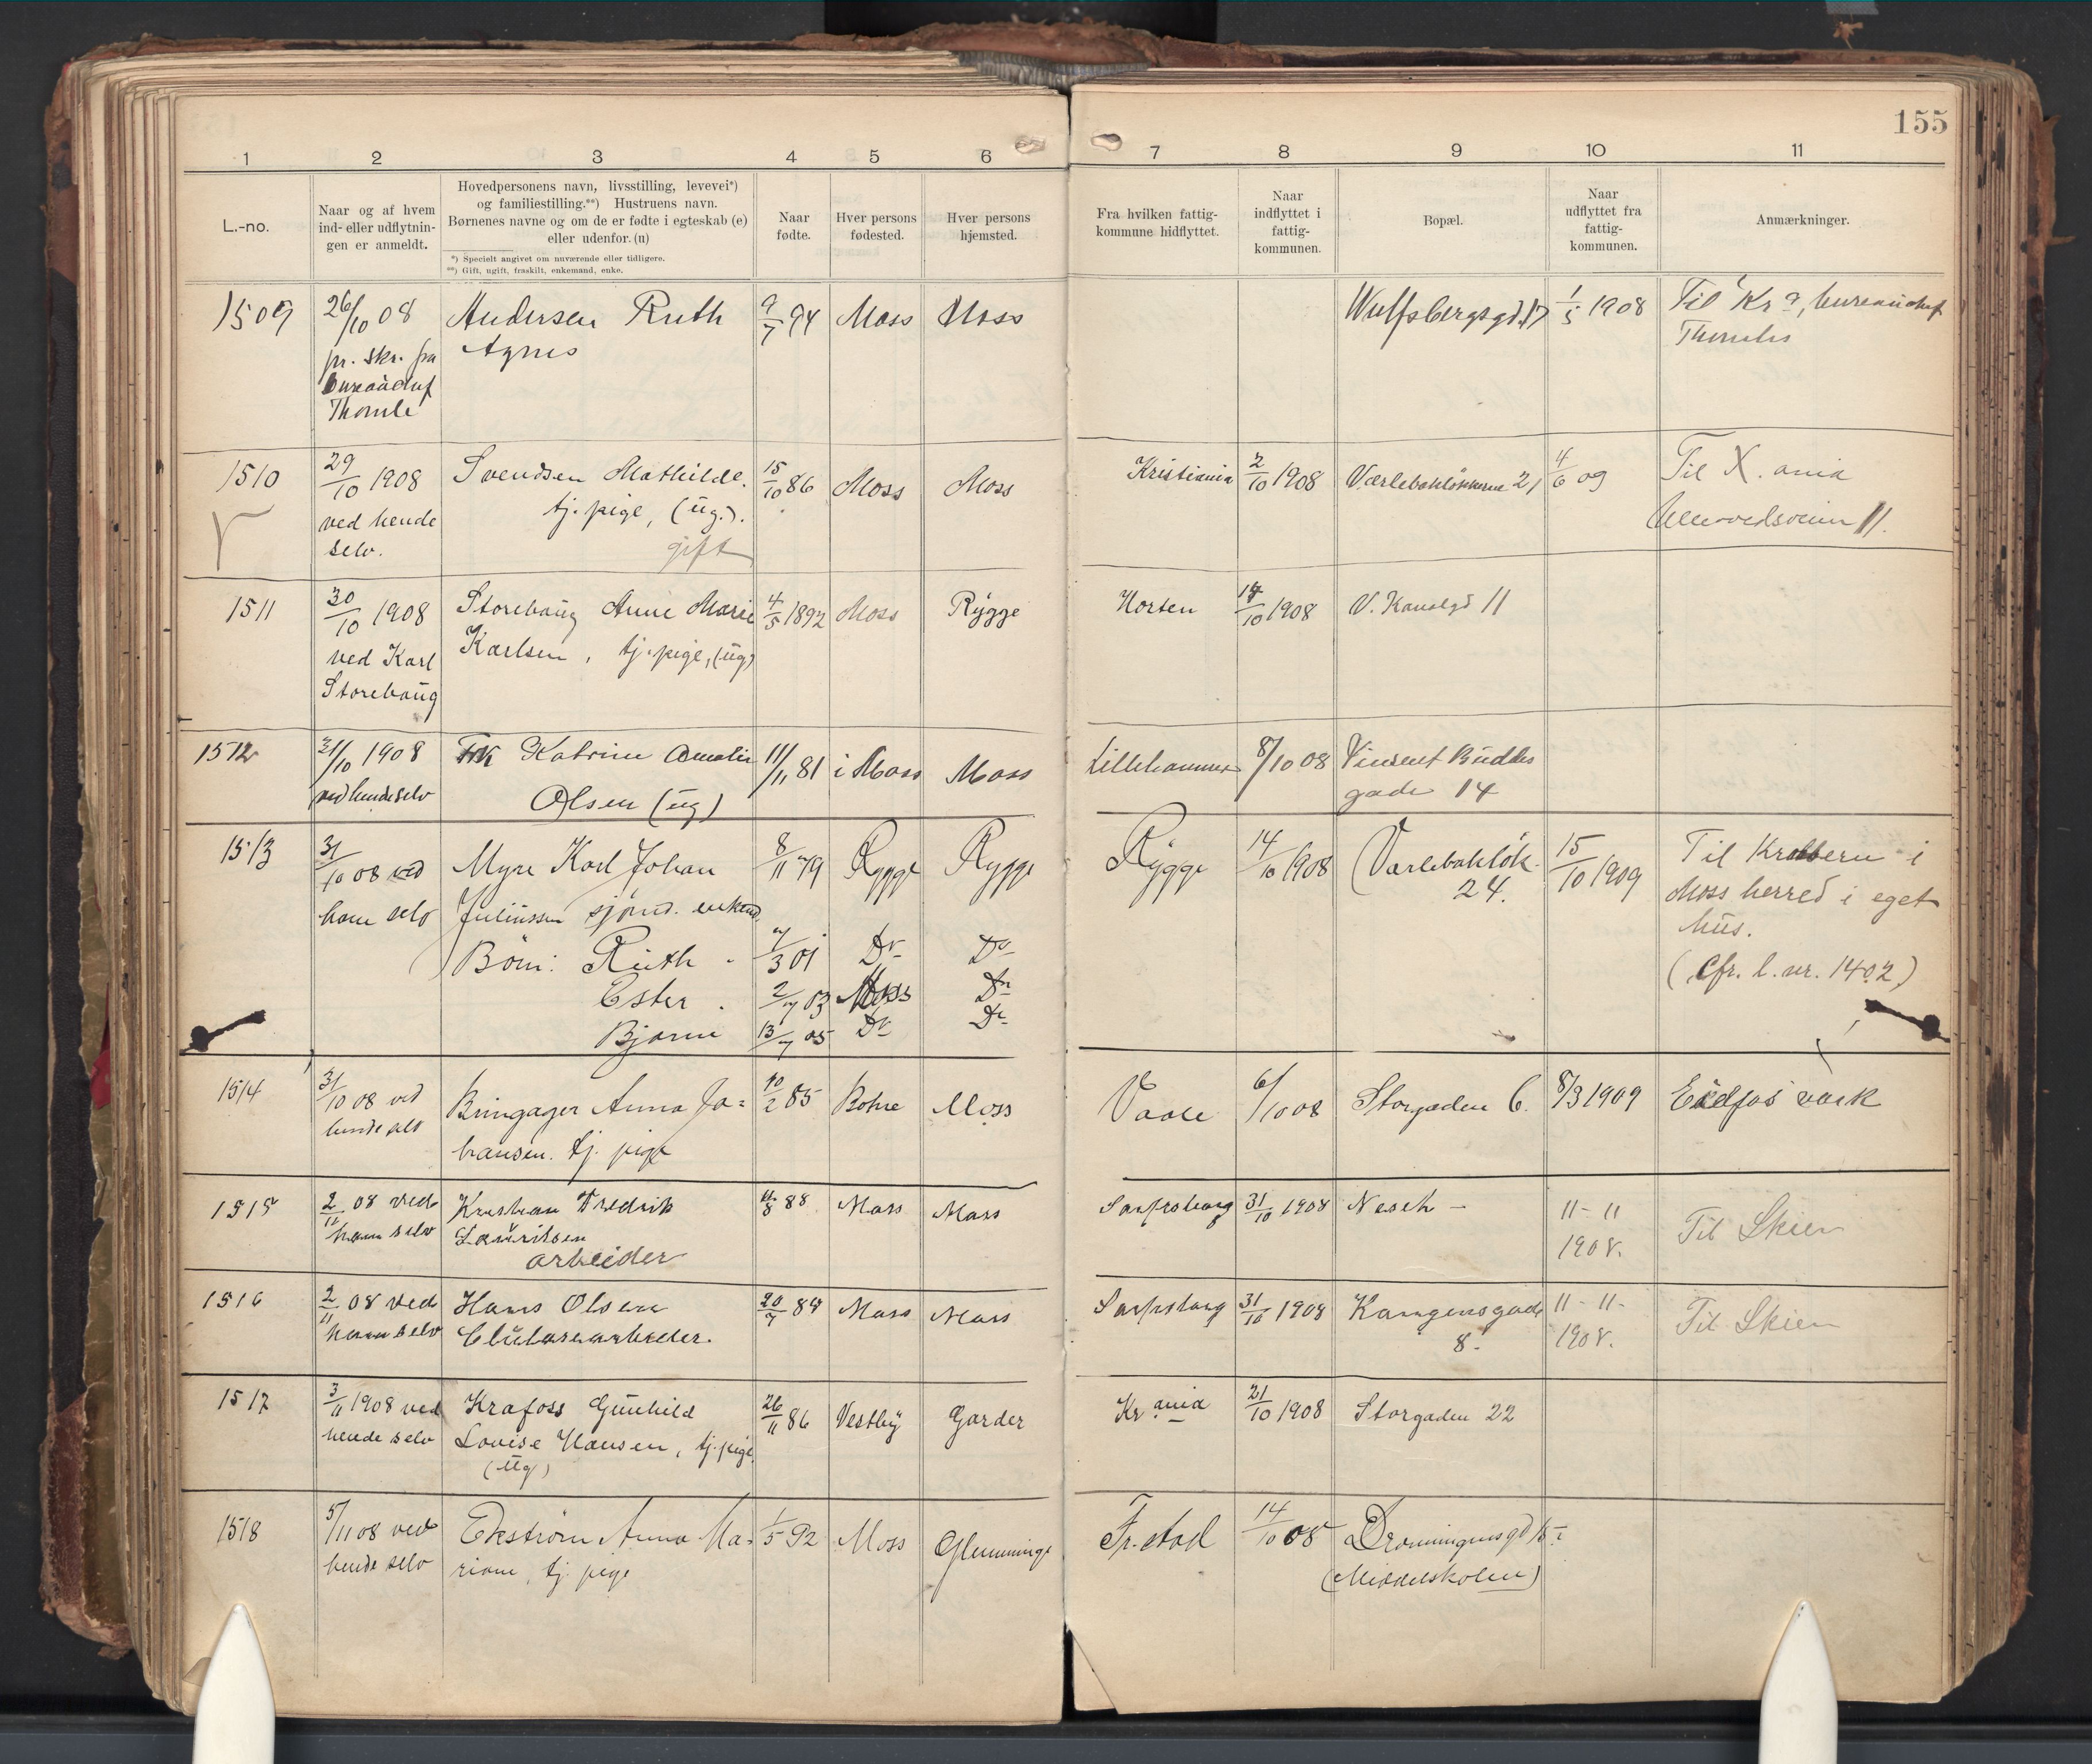 155
1 2 3 4 5 6 7 8 9 10 11
L.-no.
Naar og af hvem
ind- eller udflytnin-
gen er anmeldt.
Hovedpersonens navn, livsstilling, levevei*)
og familiestilling.**) Hustruens navn.
Børnenes navne og om de er fødte i egteskab (e)
eller udenfor. (u)
*) Specielt angivet om nuværende eller tidligere.
**) Gift, ugift, fraskilt, enkemand, enke.
Naar
fødte.
Hver persons
fødested.
Hver persons
hjemsted.
Fra hvilken fattig-
kommune hidflyttet.
Naar
indflyttet i
fattig-
kommunen.
Bopæl.
Naar
udflyttet fra
fattig-
kommunen.
Anmærkninger.
1509
26/10 08
pr. skr. fra
bureauchef
Thomle
Andersen Ruth
Agnes
9/7 94
Moss
Moss
Wulfsbergsgd. 17
1/5 1908
Til Kr a, bureauchef
Thomles
1510
29/10 1908
ved hende
selv.
Svendsen Mathilde.
tj. pige, (ug.).
gift
15/10 86
Moss
Moss
Kristiania
2/10 1908
Værlebakløkkerne 21
4/6 09
Til X. ania
11.
1511
30/10 1908
ved Karl
Storebaug
Storebaug Anne Marie
Karlsen, tj. pige, (ug)
4/5 1892
Moss
Rygge
Horten
14/10 1908
V. Kanalgd 11
1512
31/10 1908
ved hende selv
Frk Katrine Amalie
Olsen (ug)
11/11 81
i Moss
Moss
Lillehammer
8/10 08
Vincent Buddes
gade 14
1513
31/10 08 ved
ham selv
Myre Karl Johan
Juliussen sjømd. enkemd.
Børn: Ruth
Ester
Bjarne
8/11 79
7/3 01
2/7 03
13/7 05
Rygge
Do
Moss
Do
Rygge
Do
Do
Do
Rygge
14/10 1908
Værlebakløk.
24.
15/10 1909
Til Krabbern i
Moss herred i eget
hus.
(Cfr. l. nr. 1402)
1514
31/10 08 ved
hende selv
Bringager Anna Jo=
hansen. tj. pige
10/2 85
Botne
Moss
Vaale
6/10 08
Storgaden 6.
8/3 1909
Eidfos værk
1515
2/11 08 ved
ham selv
Kristian Fredrik
Lauritsen
arbeider
88
Moss
Moss
Sarpsborg
31/10 1908
Nesch -
11-11
1908.
Til Skien
1516
2/11 08 ved
ham selv
Hans Olsen
Clulosearbeder.
20/7 88
Moss
Moss
Sarpsborg
31/10 1908
Kongensgade
8.
11-11-
1908.
Til Skien
1517
3/11 1908 ved
hende selv
Krafoss Gunhild
Lovise Hansen, tj. pige
(ug)
26/11 86
Vestby
Garder
Kr ania
21/10 1908
Storgaden 22
1518
5/11 08 ved
hende selv
Ekstrøm Anna Ma=
riane, tj. pige
1/5 92
Moss
Glemminge
Fr.stad
14/10 08
Dronningensgd
(Middelskolen)